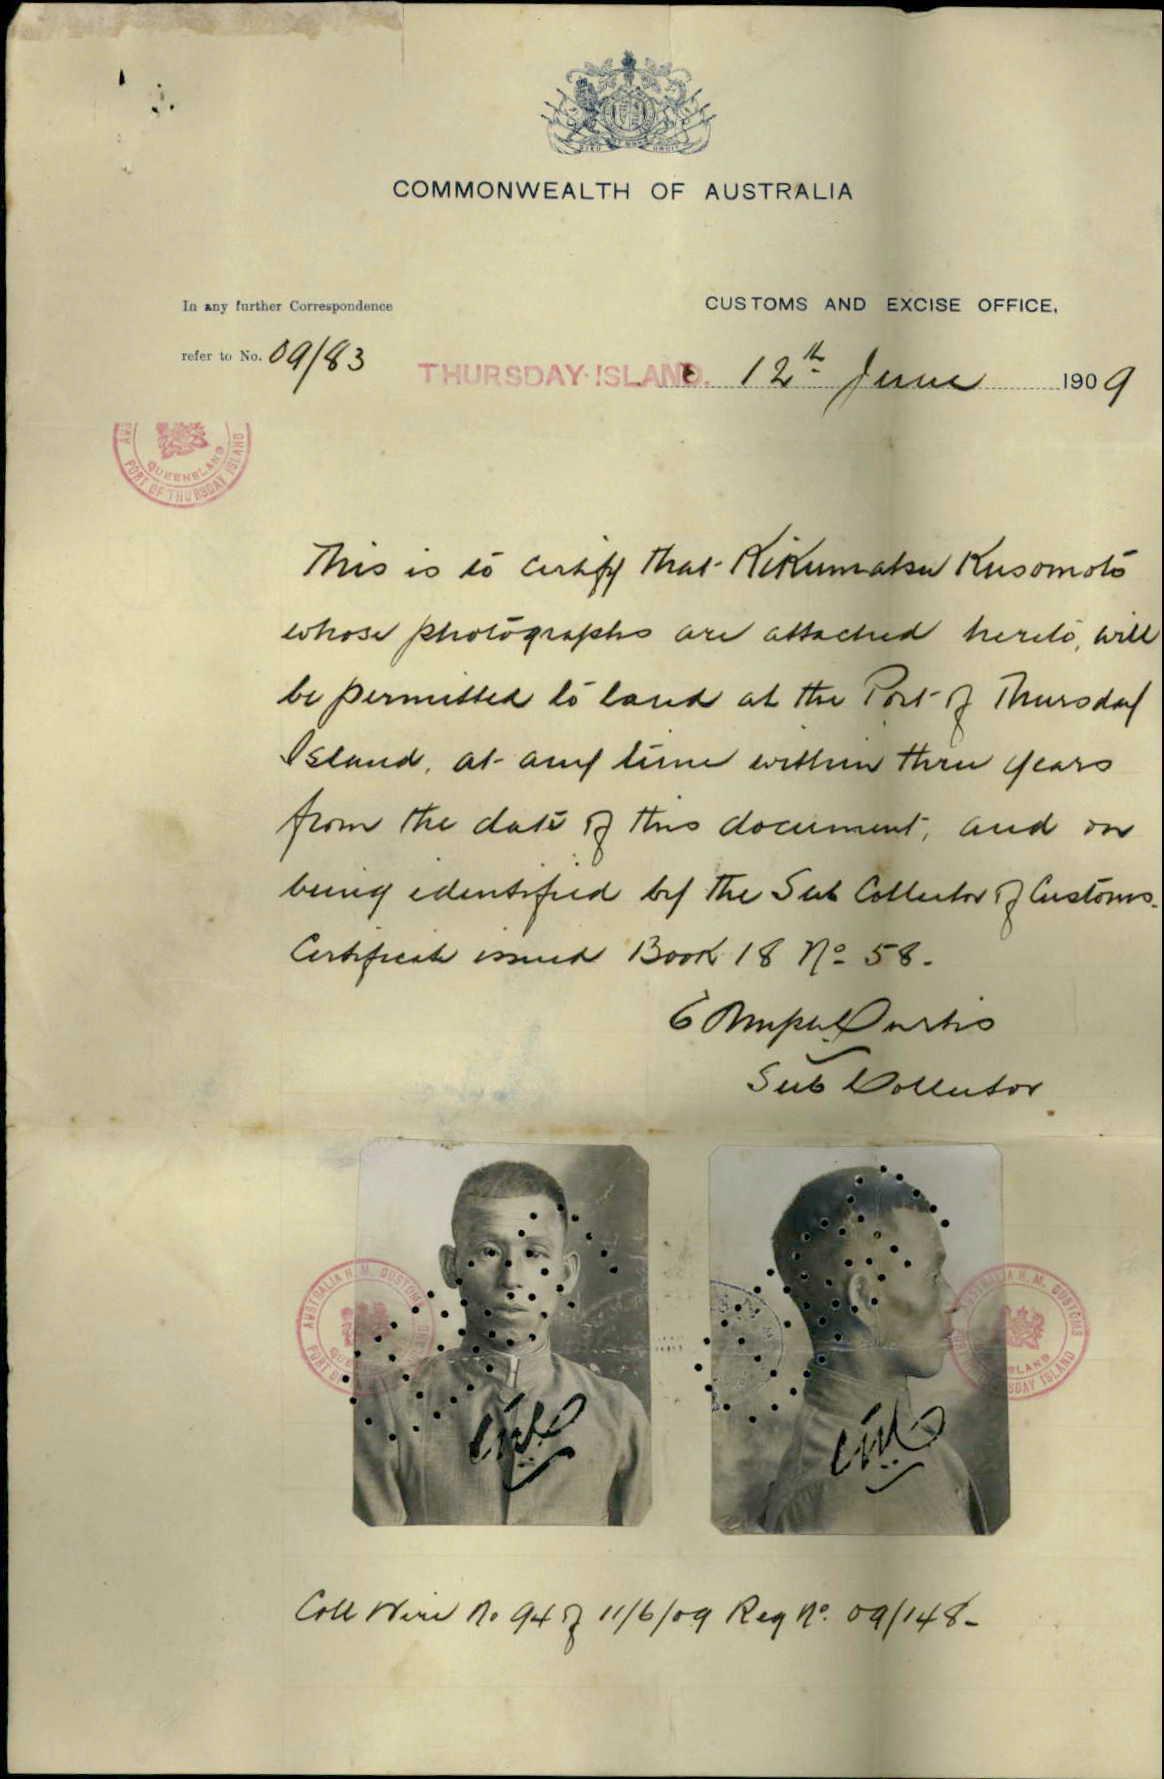 COMMONWEALTH OF AUSTRALIA
In any further Correspondence
refer to No. 09/83
CUSTOMS AND EXCISE OFFICE,
THURSDAY ISLAND. 12th June 1909
QUEENSLAND
PORT OF THURSDAY ISLAND
This is to certify that Kikumatsu Kusomoto
whose photographs are attached hereto, will
be permitted to land at the Port of Thursday
Island, at any time within three years
from the date of this document, and on
being identified by the Sub Collector of Customs.
Certificate issued Book 18 No 58.
Curtis
Sub Collector
AUSTRALIA H. M. CUSTOMS
AUSTRALIA H. M. CUSTOMS
Coll Wire No 94 of 11/6/09 Reg No. 09/148.